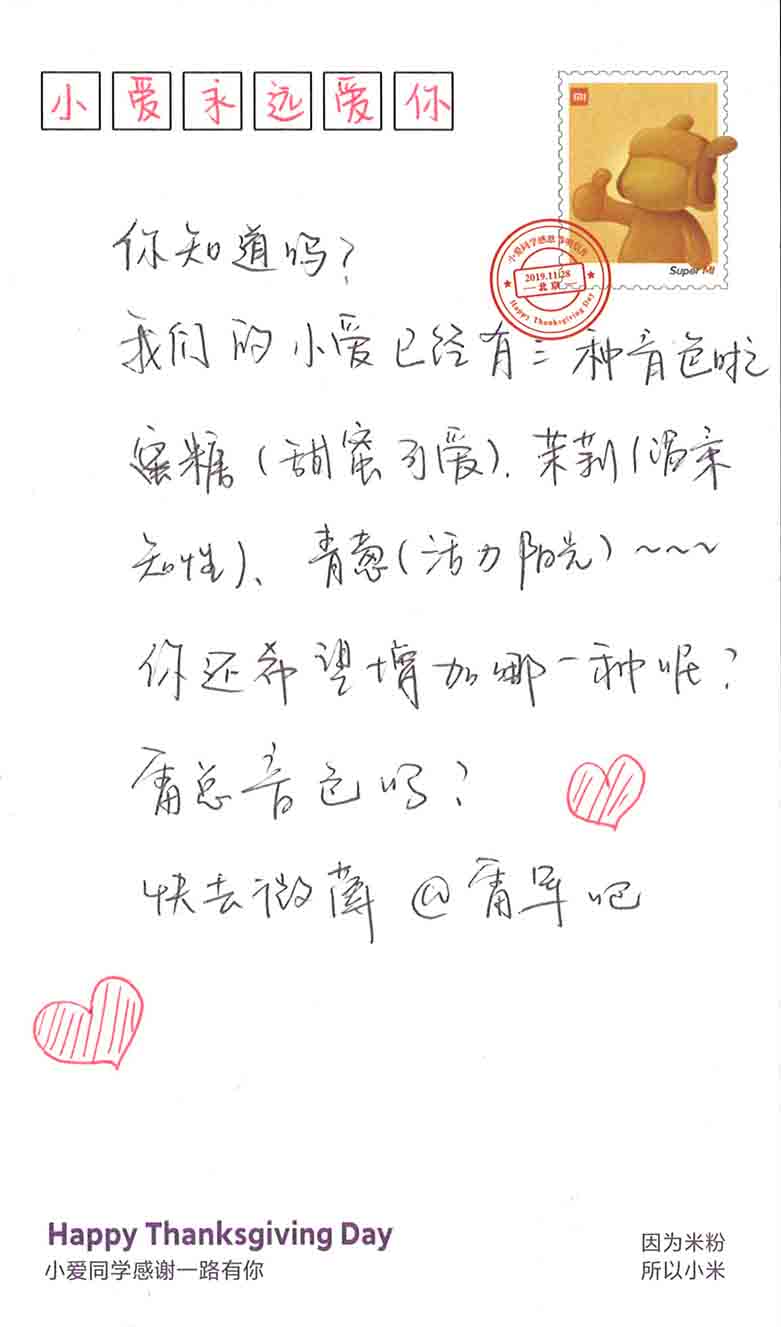 小爱永远爱你
MI
Super MI
小爱同学感恩节明信片
2019.11.28
北京
Happy Thanksgiving Day
你知道吗？
我们的小爱已经有三种音色啦
蜜糖（甜蜜可爱）、茉莉（温柔
知性）、青葱（活力阳光）~~~
你还希望增加哪一种呢？
雷总音色吗？
快去微薄@雷军吧
Happy Thanksgiving Day
小爱同学感谢一路有你
因为米粉
所以小米